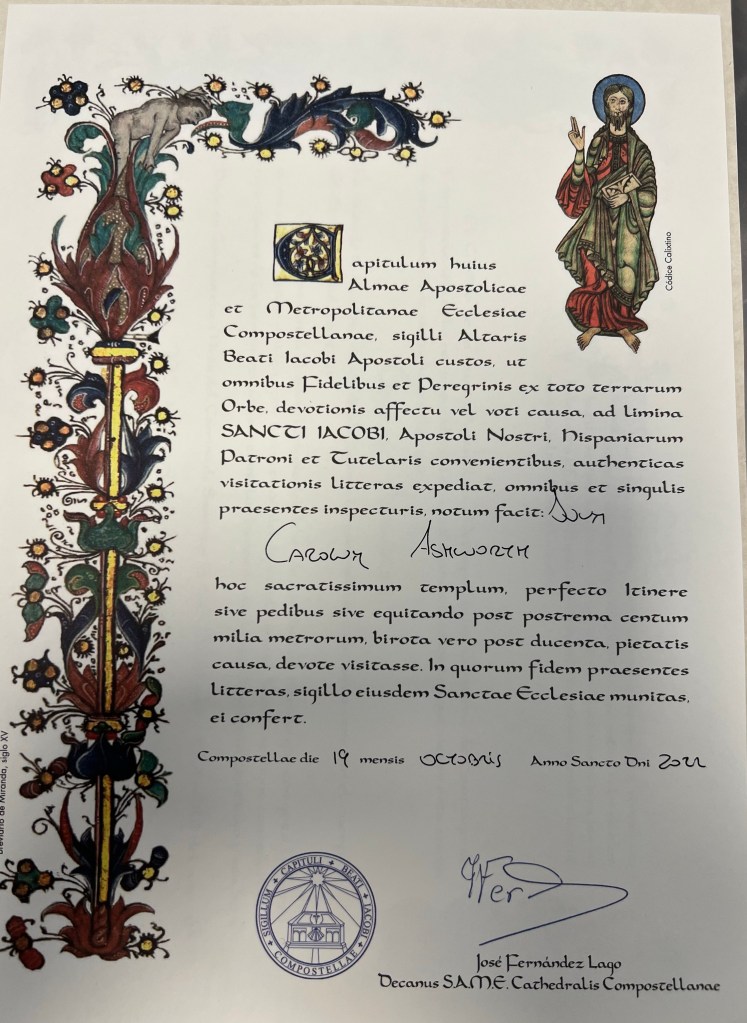 Capitulum huius
Almae Apostolicae
et Metropolitanae Ecclesiae
Compostellanae, sigilli Altaris
Beati Iacobi Apostoli custos, ut
omnibus Fidelibus et Peregrinis ex toto terrarum
Orbe, devotionis affectu vel voti causa, ad limina
SANCTI IACOBI, Apostoli Nostri, Hispaniarum
Patroni et Tutelaris convenientibus, authenticas
visitationis litteras expediat, omnibus et singulis
praesentes inspecturis, notum facit:
ASHWORTH
hoc sacratissimum templum, perfecto Itinere
sive pedibus sive equitando post postrema centum
milia metrorum, birota vero post ducenta, pietatis
causa, devote visitasse. In quorum fidem praesentes
litteras, sigillo eiusdem Sanctae Ecclesiae munitas,
ei confert.
Compostellae die 19 mensis OCTOBRIS Anno Sancto Dni 2022
Códice Calixtino
Breviario de Miranda, siglo XV
SIGILLUM CAPITULI BEATI IACOBI COMPOSTELLAE
José Fernández Lago
Decanus S.A.M.E. Cathedralis Compostellanae